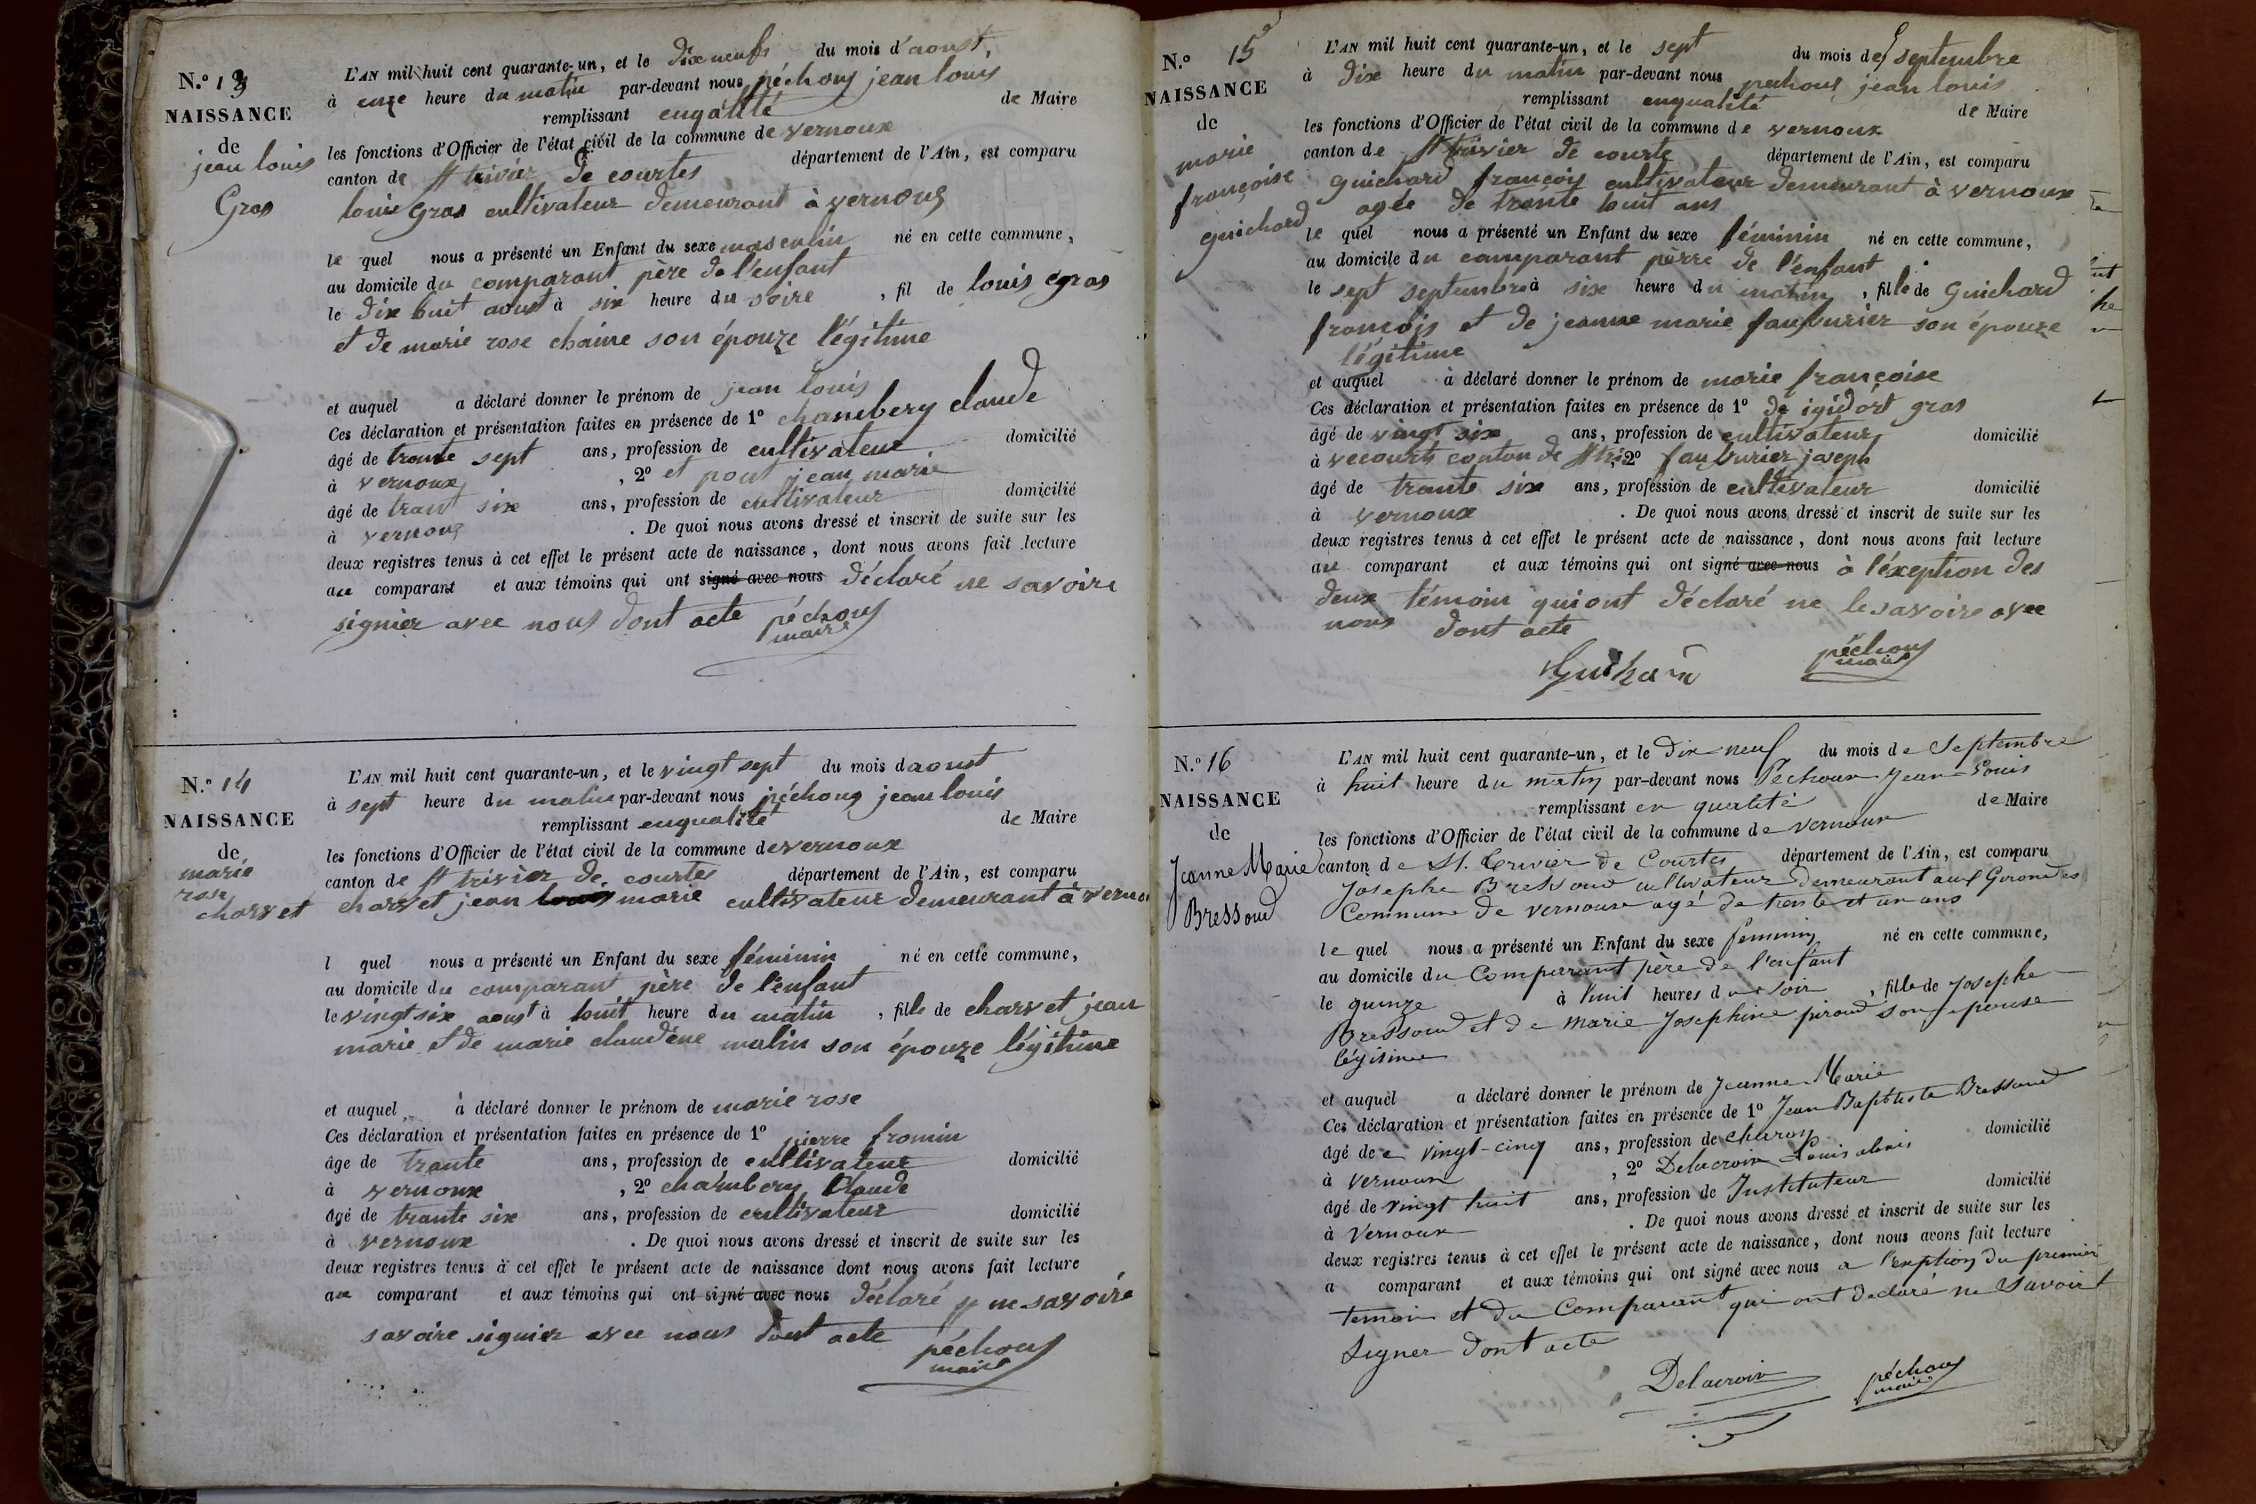 N.o 13
NAISSANCE
de
jean louis
Gras
L'AN mil huit cent quarante-un, et le dix neufs du mois d'aoust,
à onze heure du matin par-devant nous péchoux jean louis
remplissant enqalité de Maire
les fonctions d'Officier de l'état civil de la commune de vernoux
canton de st trivier de courtes département de l'Ain, est comparu
louis Gras cultivateur demeurant à vernoux
le quel nous a présenté un Enfant du sexe masculin né en cette commune,
au domicile du comparant père de l'enfant
le dix huit aoust à six heure du soire, fil de louis gras
et de marie rose chaine son épouze légitime
et auquel a déclaré donner le prénom de jean louis
Ces déclaration et présentation faites en présence de 1o chambery claude
âgé de trante sept ans, profession de cultivateur domicilié
à vernoux, 2o et pont jean marie
âgé de trant six ans, profession de cultivateur domicilié
à vernoux. De quoi nous avons dressé et inscrit de suite sur les
deux registres tenus à cet effet le présent acte de naissance, dont nous avons fait lecture
au comparant et aux témoins qui ont signé avec nous déclaré ne savoire
signier avec nous dont acte péchoux
maire
N.o 14
NAISSANCE
de
marie
rose
charvet
L'AN mil huit cent quarante-un, et le vingt sept du mois d aoust
à sept heure du matin par-devant nous péchoux jean louis
remplissant enqualité de Maire
les fonctions d'Officier de l'état civil de la commune de vernoux
canton de st trivier de courtes département de l'Ain, est comparu
charvet jean louis marie cultivateur demeurant à verno
l quel nous a présenté un Enfant du sexe féminin né en cette commune,
au domicile du comparant père de l'enfant
le vingt six aoust à huit heure du matin, fille de charvet jean
marie et de marie claudéne malin son épouze légitime
et auquel à déclaré donner le prénom de marie rose
Ces déclaration et présentation faites en présence de 1o pierre fromin
âge de trante ans, profession de cultivateur domicilié
à vernoux, 2o chambery Claude
âgé de trante six ans, profession de cultivateur domicilié
à vernoux. De quoi nous avons dressé et inscrit de suite sur les
deux registres tenus à cet effet le présent acte de naissance dont nous avons fait lecture
au comparant et aux témoins qui ont signé avec nous déclaré ne savoire
savoire signier avec nous dont acte péchoux
maire
N.o 15
NAISSANCE
de
marie
françoise
guichard
L'AN mil huit cent quarante-un, et le sept du mois de septembre
à dixe heure du matin par-devant nous pechoux jean louis
remplissant enqualité de Maire
les fonctions d'Officier de l'état civil de la commune de vernoux
canton de st trivier de courte département de l'Ain, est comparu
guichard françois cultivateur demeurant à vernoux
agée de trante huit ans
le quel nous a présenté un Enfant du sexe féminin né en cette commune,
au domicile du comparant père de l'enfant
le sept septembre à sixe heure du matin, fille de Guichard
françois et de jeanne marie fauburier son épouze
légitime
et auquel à déclaré donner le prénom de marie françoise
Ces déclaration et présentation faites en présence de 1o gras
âgé de vingt six ans, profession de cultivateur domicilié
à vecourt conton de st tri, 2o fauburier joseph
âgé de trante six ans, profession de cultivateur domicilié
à vernoux. De quoi nous avons dressé et inscrit de suite sur les
deux registres tenus à cet effet le présent acte de naissance, dont nous avons fait lecture
au comparant et aux témoins qui ont signé avec nous à l'éxeption des
deux témoin qui ont déclaré ne le savoire avec
nous dont acte
Guichard péchoux
maire
N.o 16
NAISSANCE
de
Jeanne Marie
Bressoud
L'AN mil huit cent quarante-un, et le dix neuf du mois de Septembre
à huit heure du matin par-devant nous Péchoux Jean Louis
remplissant en qualité de Maire
les fonctions d'Officier de l'état civil de la commune de vernoux
canton de St. Trivier de Courtes département de l'Ain, est comparu
Josephe Bressoud cultivateur demeurant aux Girondes
Commune de vernoux agé de trente et un ans
le quel nous a présenté un Enfant du sexe feminin né en cette commune,
au domicile du Comparant père de l'enfant
le quinze à huit heures du soir, fille de Josephe
Bressoud et de Marie Josephine piroud son epouse
légitime
et auquel a déclaré donner le prénom de Jeanne Marie
Ces déclaration et présentation faites en présence de 1o Jean Baptiste Bressoud
âgé de vingt-cinq ans, profession de charon domicilié
à Vernoux, 2o Delacroix Louis alexis
âgé de vingt huit ans, profession de Instituteur domicilié
à Vernoux. De quoi nous avons dressé et inscrit de suite sur les
deux registres tenus à cet effet le présent acte de naissance, dont nous avons fait lecture
a comparant et aux témoins qui ont signé avec nous a l'exption du premier
temoin et du Comparant qui ont declaré ne Savoir
Signer dont acte
Delacroix péchoux
maire